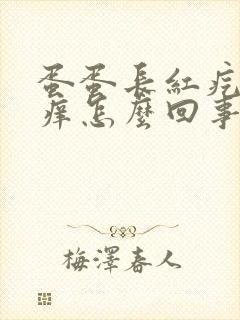 蛋蛋長紅疙
癢怎麼回事
梅澤春人